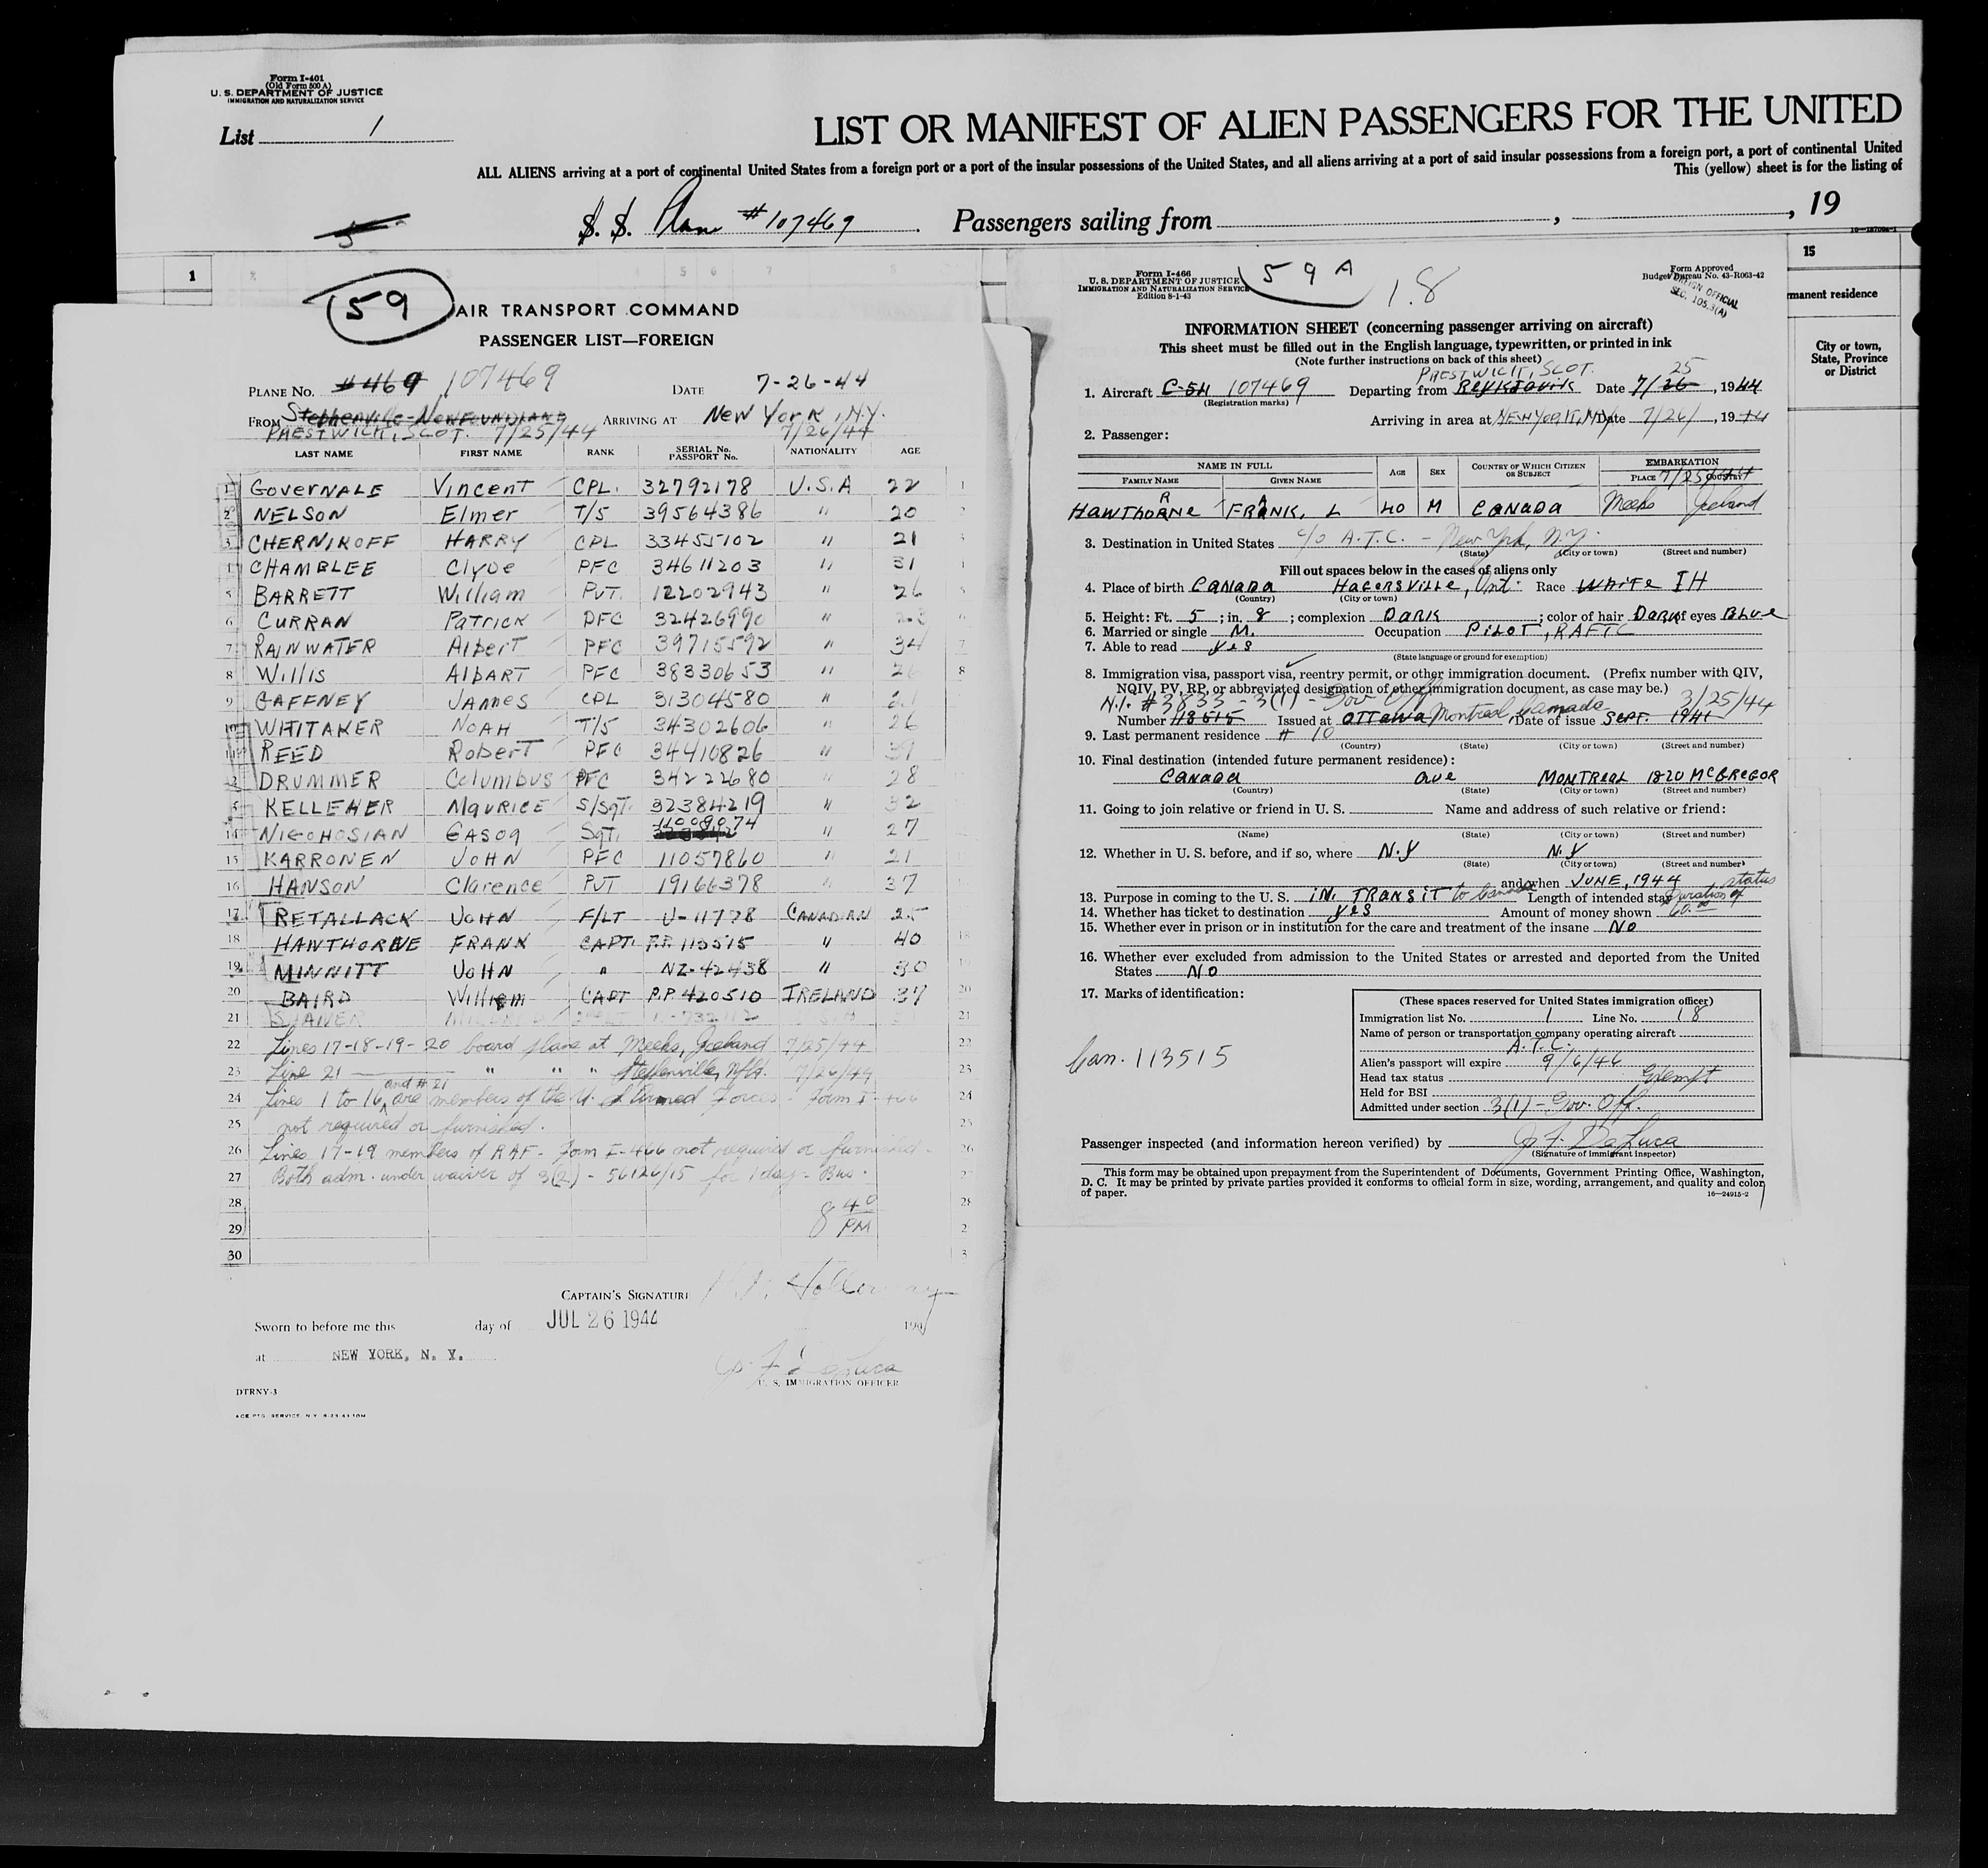 Form I-401
(Old Form 500 A)
U. S. DEPARTMENT OF JUSTICE
IMMIGRATION AND NATURALIZATION SERVICE
List 1
LIST OR MANIFEST OF ALIEN PASSENGERS FOR THE UNITED
ALL ALIENS arriving at a port of continental United States from a foreign port or a port of the insular possessions of the United States, and all aliens arriving at a port of said insular possessions from a foreign port, a port of continental United
This (yellow) sheet is for the listing of
S. S. Plane #107469 Passengers sailing from , , 19
1
59
AIR TRANSPORT COMMAND
PASSENGER LIST—FOREIGN
PLANE No. #469 107469 DATE 7-26-44
FROM Stephenville-Newfoundland ARRIVING AT New York, N.Y.
PRESTWICK, SCOT. 7/25/44 7/26/44
LAST NAME FIRST NAME RANK SERIAL No. PASSPORT No. NATIONALITY AGE
1 GOVERNALE Vincent CPL. 32792178 U.S.A 22 1
2 NELSON Elmer T/5 39564386 " 20
3 CHERNIKOFF HARRY CPL 33455102 " 21
CHAMBLEE Clyde PFC 34611203 " 31
5 BARRETT William PVT. 12202943 " 26
6 CURRAN Patrick PFC 32426990 "
7 RAINWATER Albert PFC 39715592 " 34
8 Willis AlbART PFC 38330653 " 26 8
9 GAFFNEY JAMES CPL 31304580 "
10 WHITAKER NOAH T/5 34302606 " 26
11 REED Robert PFC 34410826 "
DRUMMER Columbus PFC 34222680 " 28
KELLEHER MAURICE S/Sgt. 32384219 " 32
14 NIGOHOSIAN GASOG Sgt. 11009074 " 27
15 KARRONEN JOHN PFC 11057860 " 21
16 HANSON Clarence PVT 19166378 " 37
17 RETALLACK JOHN F/LT U-11778 CANADIAN 25
18 HAWTHORNE FRANK CAPT. P.P. 113515 " 40 18
19 MINNITT JOHN " NZ-42438 " 30
20 BAIRD William CAPT P.P. 420510 IRELAND 37 20
21 21
22 Lines 17-18-19-20 board plane at Meeks, Iceland 7/25/44 22
23 Line 21 — " " " Stephenville, Nfld. 7/26/44 23
24 Lines 1 to 16 and #21 are members of the U. S. Armed Forces - Form I-466 24
25 not required or furnished.
26 Lines 17-19 members of RAF - Form I-466 not required or furnished. 26
27 Both adm. under waiver of 3(2) - 56126/15 for 1 day - Bus.
28 8 40 28
29 PM
30
CAPTAIN'S SIGNATURE
Sworn to before me this day of JUL 26 1944
at NEW YORK, N. Y.
U. S. IMMIGRATION OFFICER
DTRNY-3
Form I-466
U. S. DEPARTMENT OF JUSTICE
IMMIGRATION AND NATURALIZATION SERVICE
Edition 8-1-43
59 A
18
Form Approved
Budget Bureau No. 43-R063-42
FOREIGN OFFICIAL
SEC. 105.3(A)
INFORMATION SHEET (concerning passenger arriving on aircraft)
This sheet must be filled out in the English language, typewritten, or printed in ink
(Note further instructions on back of this sheet)
PRESTWICK, SCOT. 25
1. Aircraft C-54 107469 Departing from REYKJAVIK Date 7/26, 1944
(Registration marks)
Arriving in area at NEW YORK, NY Date 7/26/, 1944
2. Passenger:
NAME IN FULL AGE SEX COUNTRY OF WHICH CITIZEN OR SUBJECT EMBARKATION
FAMILY NAME GIVEN NAME PLACE 7/25/44 COUNTRY
HAWTHORNE FRANK, L 40 M CANADA Meeks Iceland
3. Destination in United States c/o A.T.C. - New York, N.Y.
(State) (City or town) (Street and number)
Fill out spaces below in the cases of aliens only
4. Place of birth CANADA HAGERSVILLE, Ont. Race White IH
(Country) (City or town)
5. Height: Ft. 5; in. 8; complexion DARK; color of hair DARK of eyes BLUE
6. Married or single M. Occupation PILOT, RAFTC
7. Able to read yes
(State language or ground for exemption)
8. Immigration visa, passport visa, reentry permit, or other immigration document. (Prefix number with QIV,
NQIV, PV, RP, or abbreviated designation of other immigration document, as case may be.)
N.I. #3833 - 3(1) - Gov Off 3/25/44
Number Issued at OTTAWA Montreal Canada, Date of issue SEPT. 1941
9. Last permanent residence # 10
(Country) (State) (City or town) (Street and number)
10. Final destination (intended future permanent residence):
CANADA QUE MONTREAL 1820 McGREGOR
(Country) (State) (City or town) (Street and number)
11. Going to join relative or friend in U. S. Name and address of such relative or friend:
(Name) (State) (City or town) (Street and number)
12. Whether in U. S. before, and if so, where N.Y N.Y
(State) (City or town) (Street and number)
and when JUNE, 1944
13. Purpose in coming to the U. S. IN TRANSIT to Canada Length of intended stay Duration of status
14. Whether has ticket to destination yes Amount of money shown 60.00
15. Whether ever in prison or in institution for the care and treatment of the insane NO
16. Whether ever excluded from admission to the United States or arrested and deported from the United
States NO
17. Marks of identification:
Can. 113515
(These spaces reserved for United States immigration officer)
Immigration list No. 1 Line No. 18
Name of person or transportation company operating aircraft
A.T.C.
Alien's passport will expire 9/6/46
Head tax status Exempt
Held for BSI
Admitted under section 3(1) - Gov. Off.
Passenger inspected (and information hereon verified) by J. F. DeLuca
(Signature of immigrant inspector)
This form may be obtained upon prepayment from the Superintendent of Documents, Government Printing Office, Washington,
D. C. It may be printed by private parties provided it conforms to official form in size, wording, arrangement, and quality and color
of paper.
16—24915-2
15
manent residence
City or town,
State, Province
or District